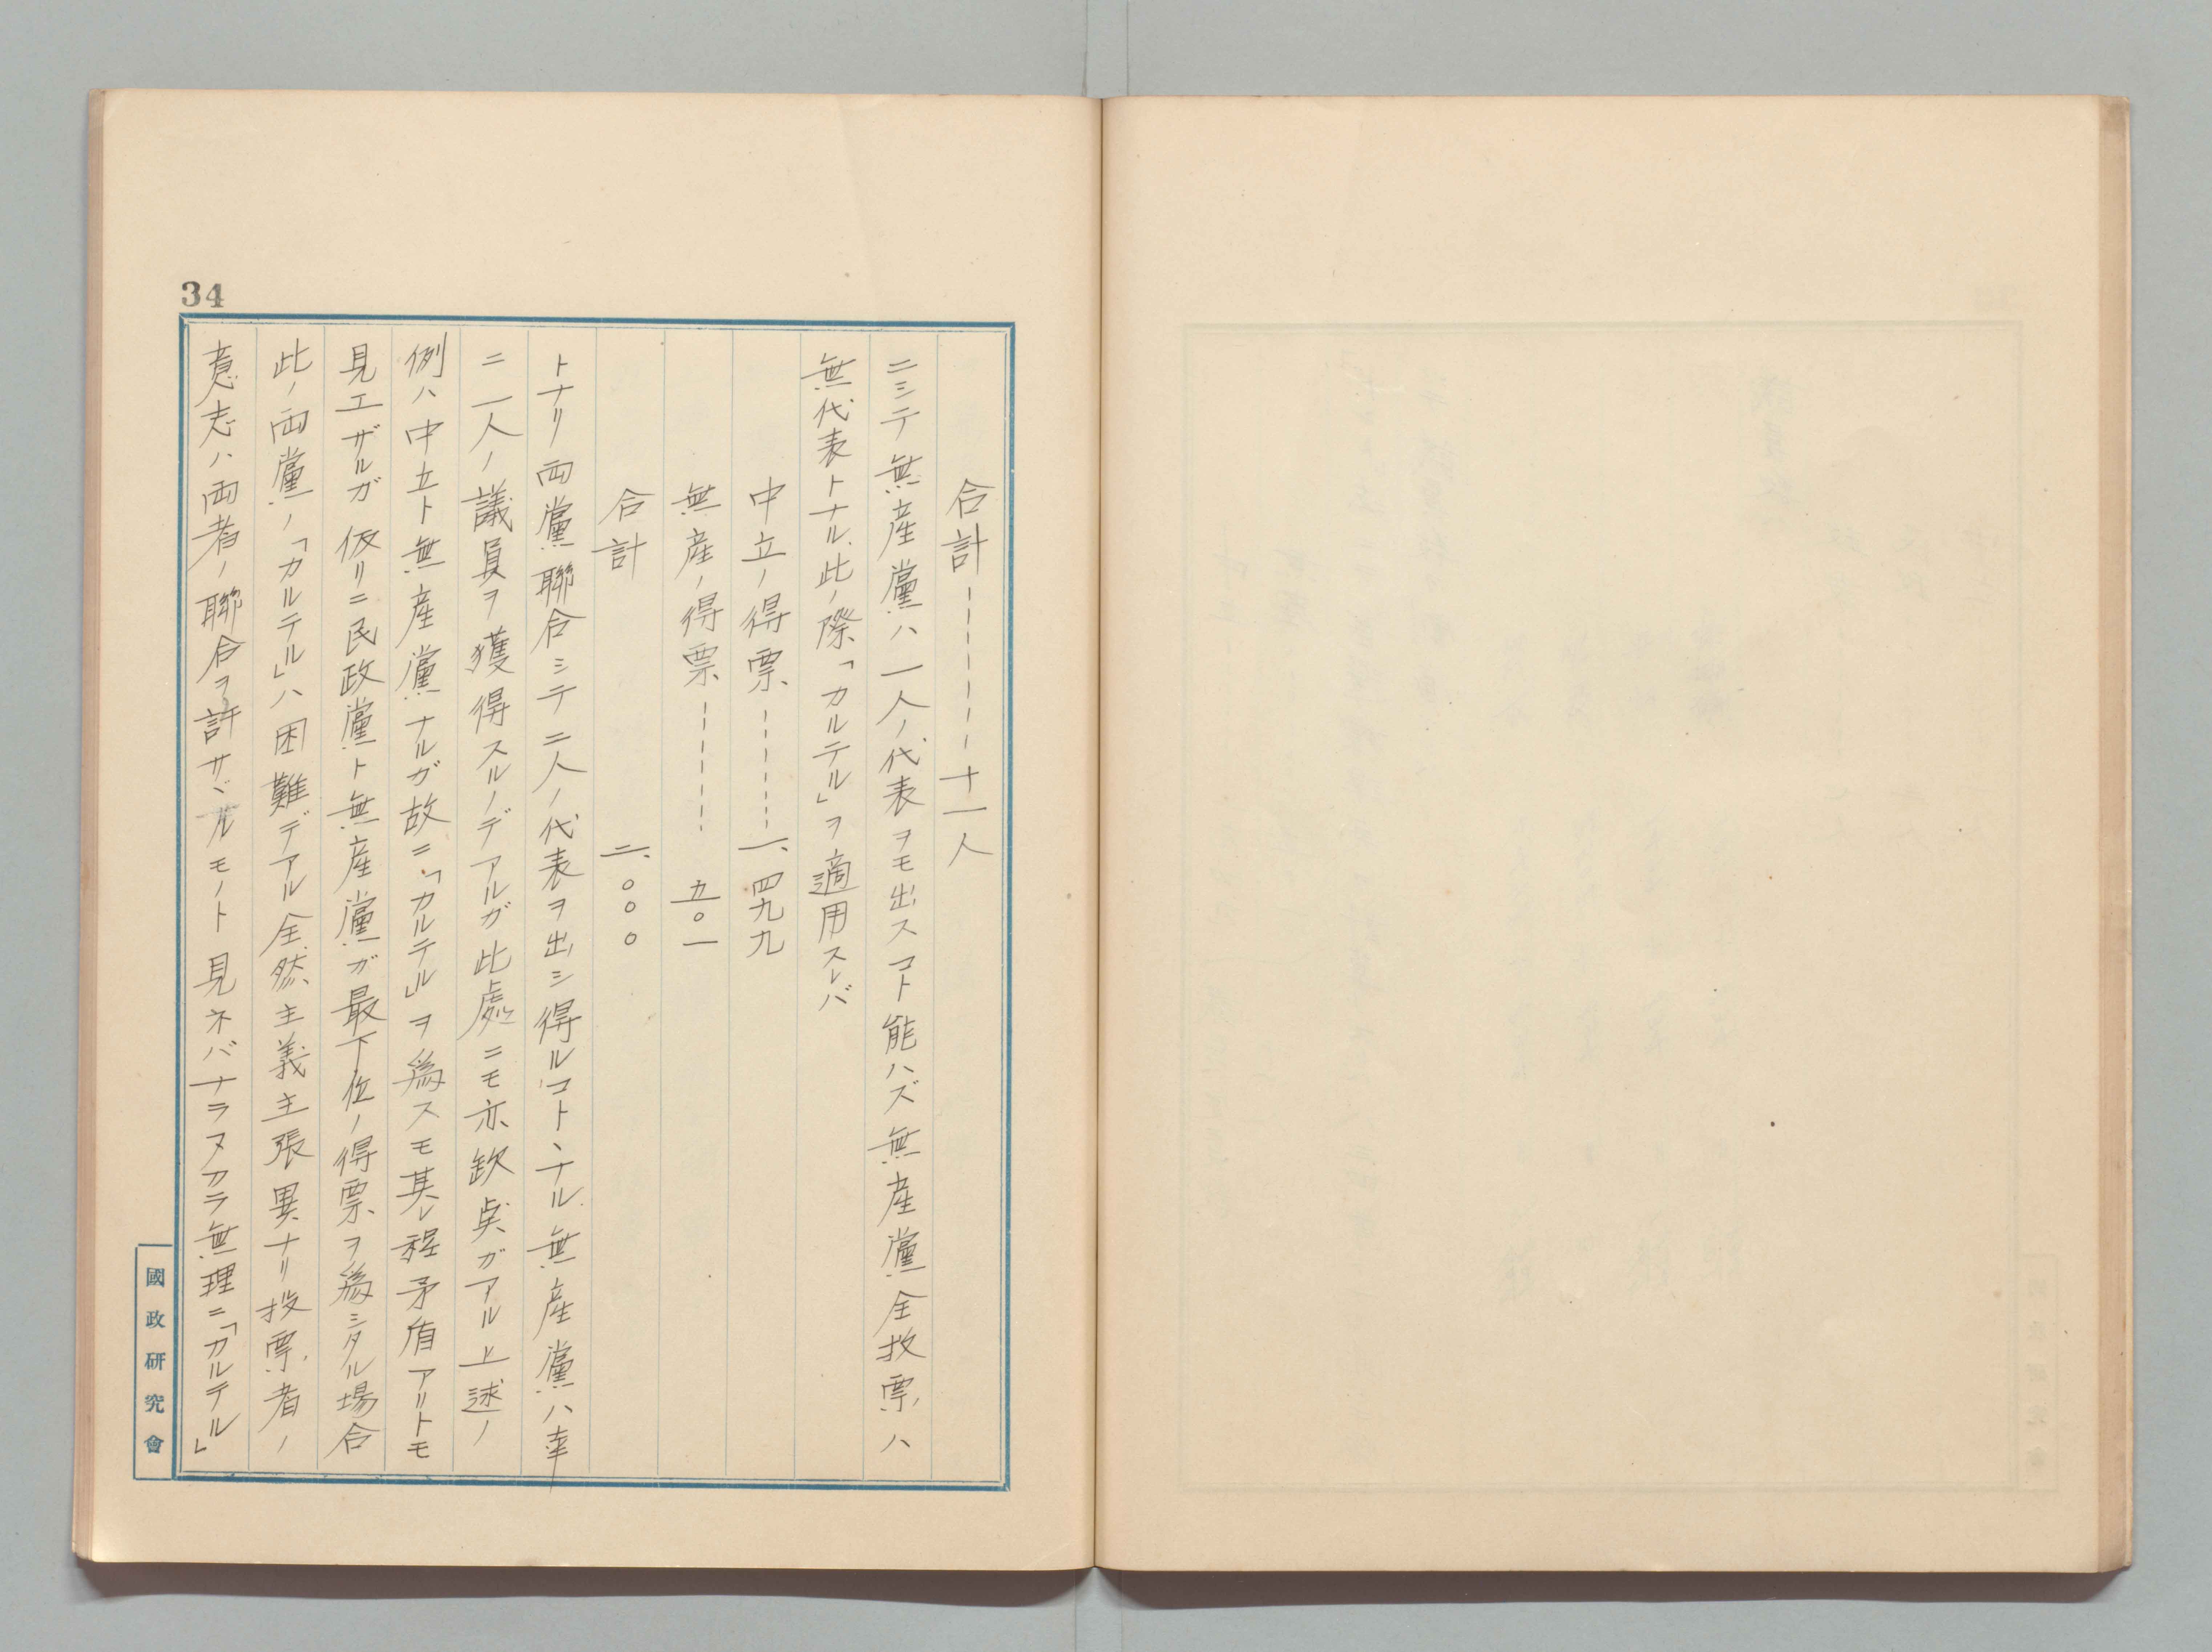 34
合計────────十一人
ニシテ無産黨ハ一人ノ代表ヲモ出スコト能ハズ無産黨全投票ハ
無代表トナル、此ノ際「カルテル」ヲ適用スレバ
中立ノ得票──────一、四九九
無産ノ得票────── 五〇一
合計 二、〇〇〇
トナリ両黨聯合シテ二人ノ代表ヲ出シ得ルコトヽナル無産黨ハ幸
ニ一人ノ議員ヲ獲得スルノデアルガ此處ニモ亦欽奌ガアル上述ノ
例ハ中立ト無産黨ナルガ故ニ「カルテル」ヲ爲スモ其レ程矛盾アリトモ
見エザルガ仮リニ民政黨ト無産黨ガ最下位ノ得票ヲ爲シタル場合
此ノ両黨ノ「カルテル」ハ困難デアル全然主義主張異ナリ投票者ノ
意志ハ両者ノ聯合ヲ許サヾルモノト見ネバナラヌカラ無理ニ「カルテル」
國政研究會